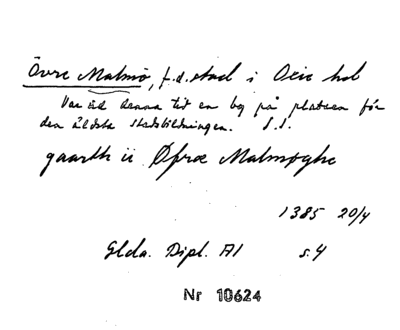 Övre Malmö, f.d. stad i Oxie hd
Var vid denna tid en by på platsen för
den äldsta stadsbildningen. S.S.
gaarth ii Øfræ Malmøghe
1385 20/4
Glda. Dipl. A1 s. 4
Nr 10624